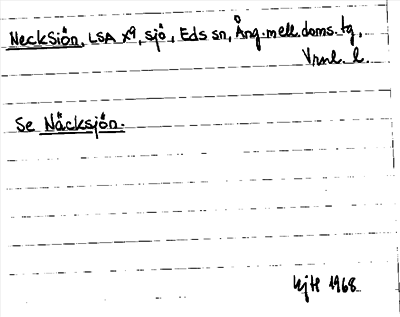 NeckSiön, LSA X9, sjö, Eds sn, Ång. mell. doms. tg,
Vrnl. l.
Se Näcksjön.
1968